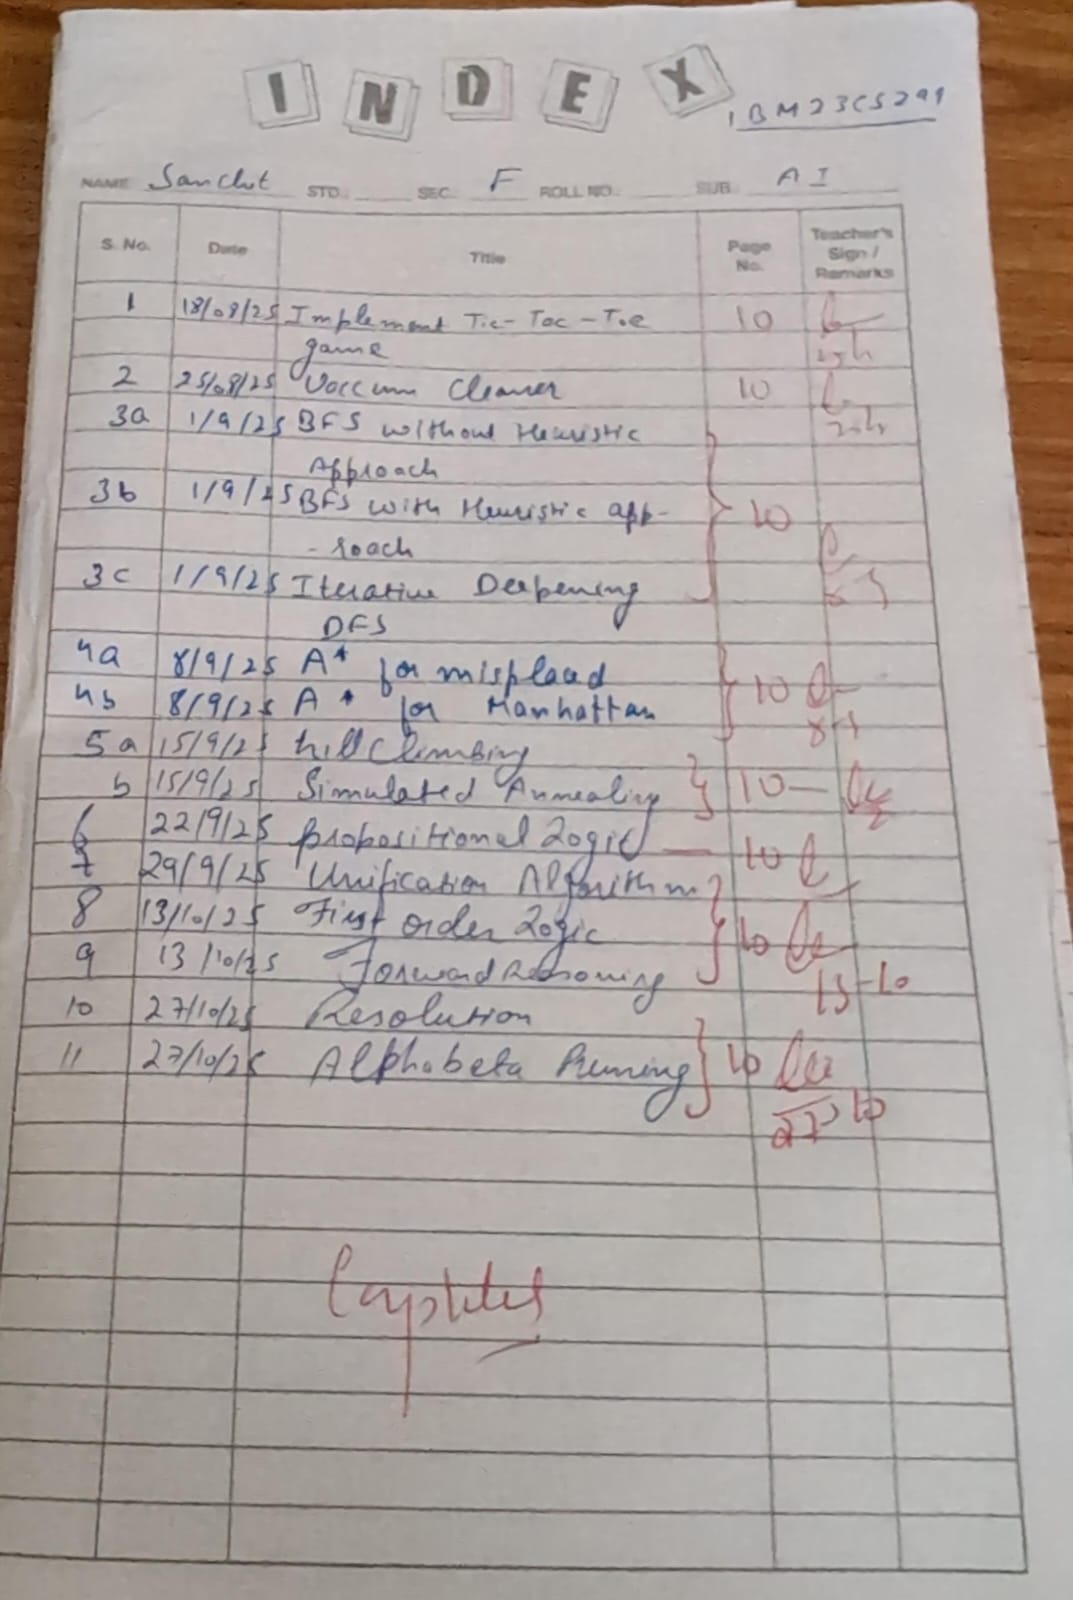 INDEX
1BM23CS299
NAME Sanchit STD. SEC. F ROLL NO. SUB. AI
S. No. Date Title Page No. Teacher's Sign / Remarks
1 18/08/25 Implement Tic-Tac-Toe 10
game
2 25/08/25 Vaccum Cleaner 10
3a 1/9/25 BFS without Heuristic
Approach
3b 1/9/25 BFS with Heuristic app- 10
-roach
3c 1/9/25 Iterative Deepening
DFS
4a 8/9/25 A* for misplaced 10
4b 8/9/25 A* for Manhattan
5a 15/9/25 hill Climbing
b 15/9/25 Simulated Annealing 10
6 22/9/25 propositional Logic 10
7 29/9/25 Unification Algorithm
8 13/10/25 First order Logic 10
9 13/10/25 Forward Reasoning
13-10
10 27/10/25 Resolution
11 27/10/25 Alphabeta Pruning 10
27 10